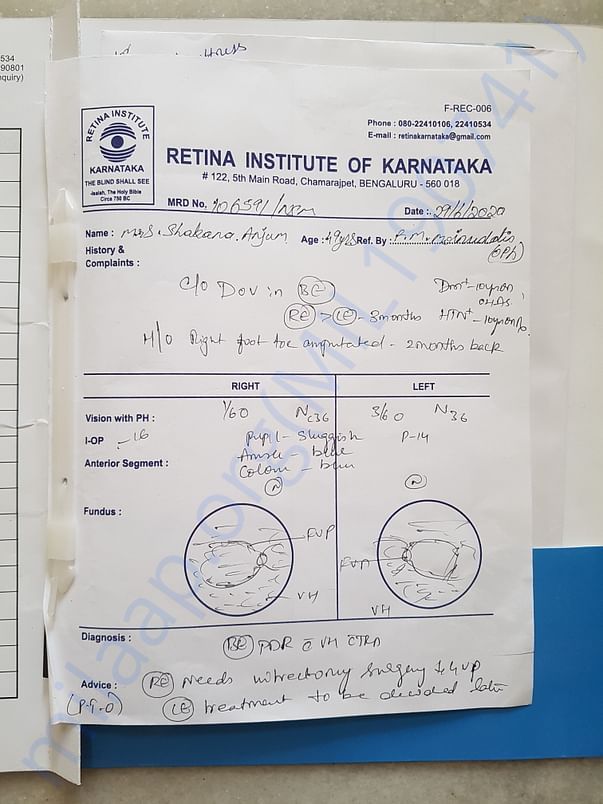 534
90801
nquiry)
F-REC-006
Phone : 080-22410106, 22410534
E-mail : retinakarnataka@gmail.com
RETINA INSTITUTE
KARNATAKA
THE BLIND SHALL SEE
-Isaiah, The Holy Bible
Circa 750 BC
RETINA INSTITUTE OF KARNATAKA
# 122, 5th Main Road, Chamarajpet, BENGALURU - 560 018
MRD No. 106591/ Date :. 29/6/2020
Name : Mrs. Shakara. Anjum Age : 49yrs Ref. By :
(OPh)
History &
Complaints :
C/o DOV in BE
DM+ - 10yr on OHAs
RE > LE - 3months HTN+ - 10yr on
H/o Right foot toe amputated - 2months back
RIGHT LEFT
Vision with PH : 1/60 N<36 3/60 N36
I-OP - 16 Pupil - Sluggish P-14
Anterior Segment :
Colour - blue
N N
Fundus :
FVP
FVP
VH
VH
Diagnosis : BE PDR c̄ VH CTRD
Advice : RE Needs vitrectomy surgery
(P.T.O) LE treatment to be decided later
milaap.org(MIL190741)